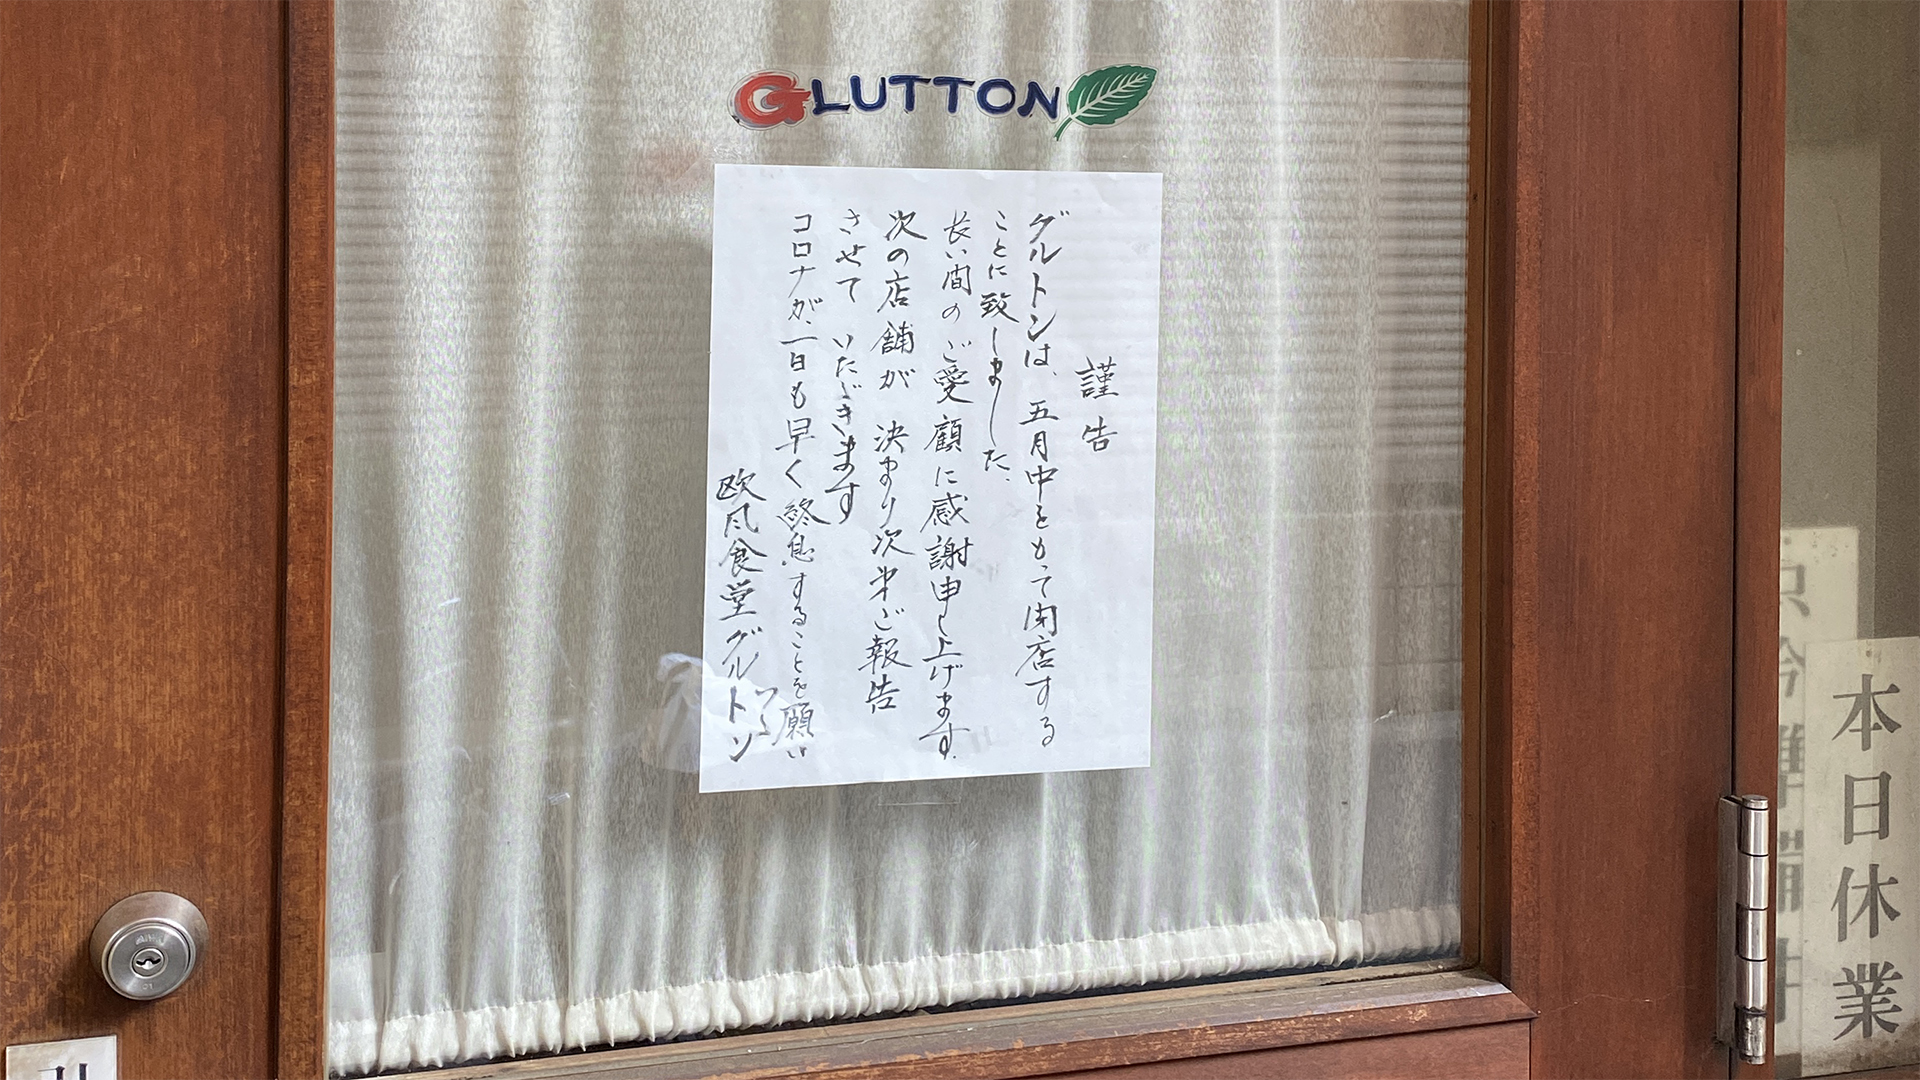 GLUTTON
謹告
グルトンは、五月中をもって閉店する
ことに致しました、
長い間のご愛顧に感謝申し上げます。
次の店舗が 決まり次第ご報告
させて いただきます
コロナが、一日も早く終息することを願い
つつ
欧風食堂グルトン
本日休業
準備中